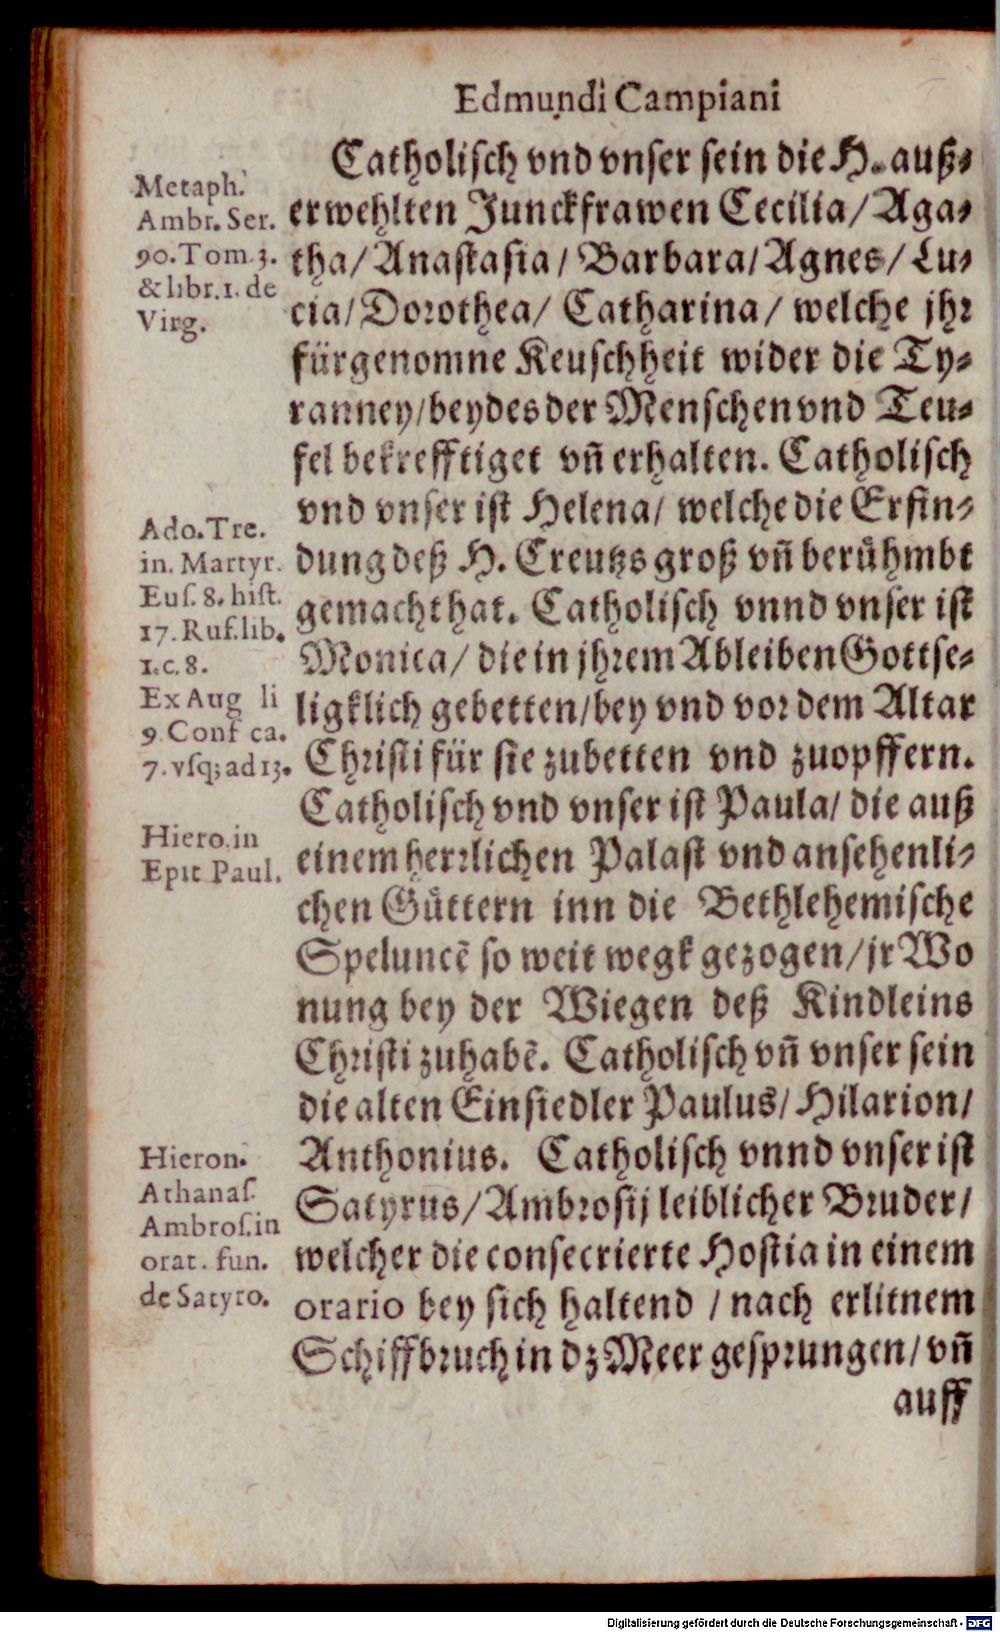 Edmundi Campiani
Catholisch vnd vnser sein die H. auß-
erwehlten Junckfrawen Cecilia/ Aga-
tha/ Anastasia/ Barbara/ Agnes/ Lu-
cia/ Dorothea/ Catharina/ welche jhr
fürgenomne Keuschheit wider die Ty-
ranney/ beydes der Menschen vnd Teu-
fel bekrefftiget vñ erhalten. Catholisch
vnd vnser ist Helena/ welche die Erfin-
dung deß H. Creutzs groß vñ berühmbt
gemacht hat. Catholisch vnnd vnser ist
Monica/ die in jhrem Ableiben Gottse-
ligklich gebetten/ bey vnd vor dem Altar
Christi für sie zubetten vnd zuopffern.
Catholisch vnd vnser ist Paula/ die auß
einem herrlichen Palast vnd ansehenli-
chen Güttern inn die Bethlehemische
Speluncẽ so weit wegk gezogen/ jr Wo
nung bey der Wiegen deß Kindleins
Christi zuhabẽ. Catholisch vñ vnser sein
die alten Einsiedler Paulus/ Hilarion/
Anthonius. Catholisch vnnd vnser ist
Satyrus/ Ambrosij leiblicher Bruder/
welcher die consecrierte Hostia in einem
orario bey sich haltend / nach erlitnem
Schiffbruch in dz Meer gesprungen/ vñ
auff
Metaph.
Ambr. Ser.
90. Tom. 3.
& libr. 1. de
Virg.
Ado. Tre.
in. Martyr.
Eus. 8. hist.
17. Ruf. lib.
1. c. 8.
Ex Aug li
9 Conf ca.
7. vsq; ad 13.
Hiero. in
Epit Paul.
Hieron.
Athanas.
Ambros. in
orat. fun.
de Satyro.
Digitalisierung gefördert durch die Deutsche Forschungsgemeinschaft - DFG